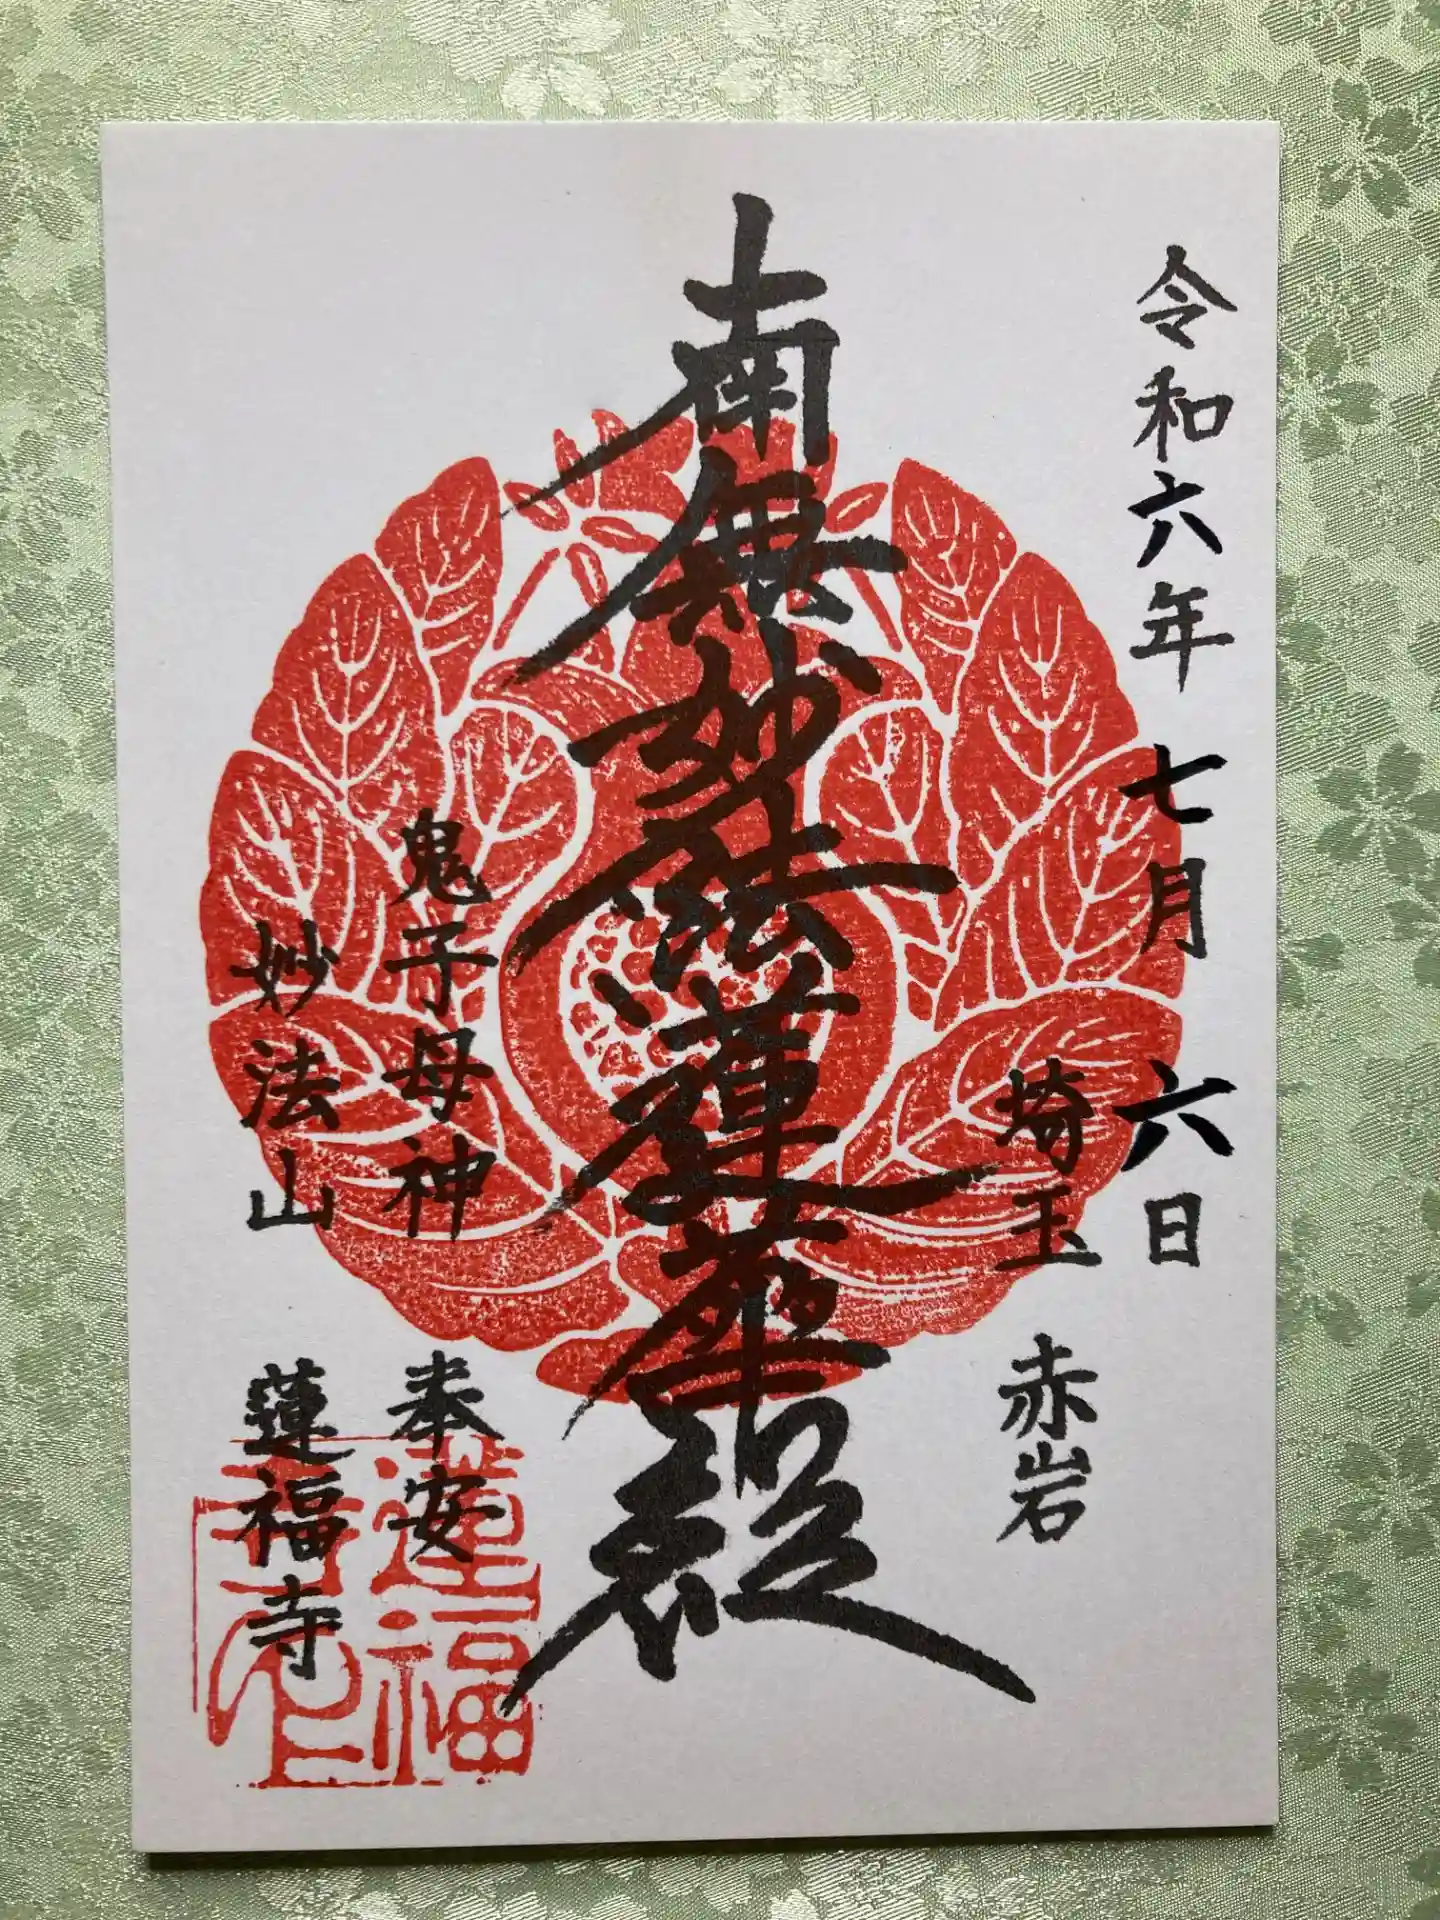 令和六年 七月 六日
埼玉 赤岩
南無妙法蓮華経
鬼子母神 奉安
妙法山 蓮福寺
蓮福